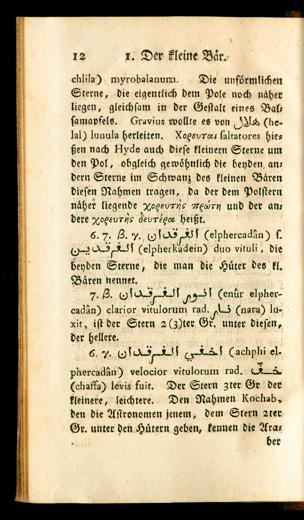 12 1. Der kleine Bär.
chlila) myrobalanum. Die unförmlichen
Sterne, die eigentlich dem Pole noch näher
liegen, gleichsam in der Gestalt eines Bal-
samapfels. Gravius wollte es von هلال (he-
lal) lunula herleiten. Χορευται saltatores hie-
ßen nach Hyde auch diese kleinern Sterne um
den Pol, obgleich gewöhnlich die beyden an-
dern Sterne im Schwanz des kleinen Bären
diesen Nahmen tragen, da der dem Polstern
näher liegende χορευτὴς πρώτη und der an-
dere χορευτὴς δευτέρα heißt.
6. 7. β. γ. الفرقدان (elphercadân) s.
الفرقدين (elpherkadein) duo vituli, die
beyden Sterne, die man die Hüter des kl.
Bären nennet.
7. β. انور الفرقدان (enûr elpher-
cadân) clarior vitulorum rad. نار (nara) lu-
xit, ist der Stern 2 (3)ter Gr. unter diesen,
der hellere.
6. γ. اخفي الفرقدان (achphi el-
phercadân) velocior vitulorum rad. خف
(chaffa) levis fuit. Der Stern 3ter Gr der
kleinere, leichtere. Den Nahmen Kochab,
den die Astronomen jenem, dem Stern 2ter
Gr. unter den Hütern geben, kennen die Ara-
ber